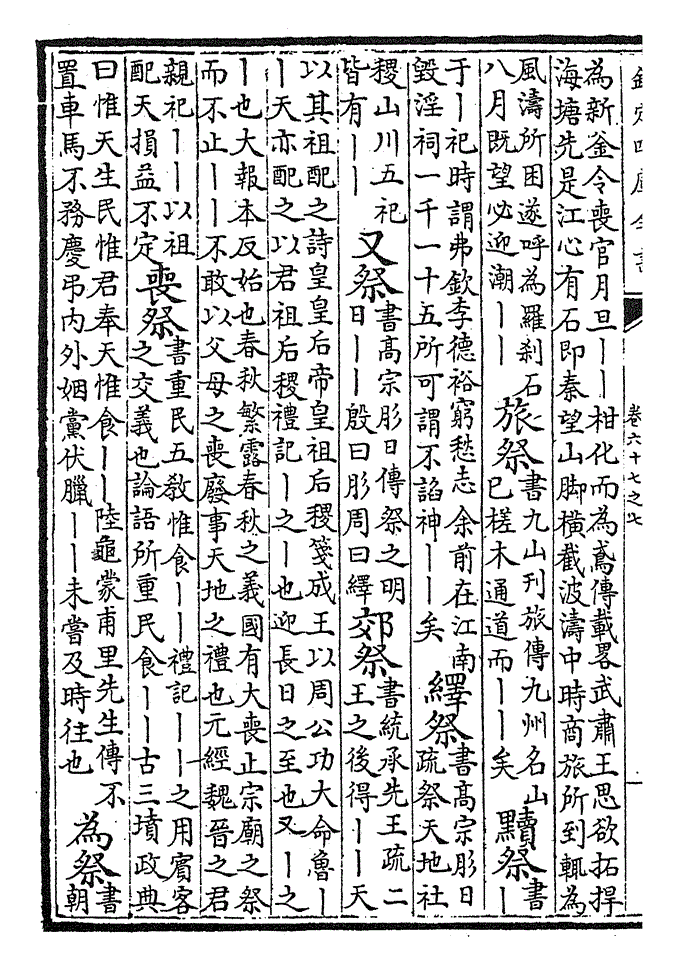 欽定四庫全書
卷六十七之七
為新釜令喪官月旦丨丨柑化而為鳶傳載畧武肅王思欲拓捍
海塘先是江心有石即秦望山脚橫截波濤中時商旅所到輒為
風濤所困遂呼為羅刹石
八月既望必迎潮丨丨
旅祭
書九山刊旅傳九州名山
已槎木通道而丨丨矣
黷祭
書
丨
于丨祀時謂弗欽李德裕窮愁志余前在江南
毀淫祠一千一十五所可謂不諂神丨丨矣
繹祭
書高宗肜日
疏祭天地社
稷山川五祀
皆有丨丨
又祭
書高宗肜日傳祭之明
日丨丨殷曰肜周曰繹
郊祭
書統承先王疏二
王之後得丨丨天
以其祖配之詩皇皇后帝皇祖后稷箋成王以周公功大命魯丨
丨天亦配之以君祖后稷禮記丨之丨也迎長日之至也又丨之
丨也大報本反始也春秋繁露春秋之義國有大喪止宗廟之祭
而不止丨丨不敢以父母之喪廢事天地之禮也元經魏晉之君
親祀丨丨以祖
配天損益不定
喪祭
書重民五敎惟食丨丨禮記丨丨之用賓客
之交義也論語所重民食丨丨古三墳政典
曰惟天生民惟君奉天惟食丨丨陸龜蒙甫里先生傳不
置車馬不務慶弔內外姻黨伏臘丨丨未嘗及時往也
為祭
書
朝